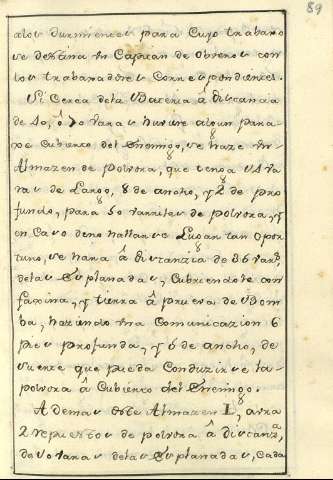 89
alos durmientes para Cuyo trabaxo
se destina un Capitan de Obreros con
los trabaxadores Correspondientes.
Si Cerca dela Bateria â distancia
de 50, ô 70 varas huviere algun para-
xe Cubierto del Enemigo, se haze un
Almazen de Polvora, que tenga
ras de Largo, 8 de ancho, y 2 de pro
fundo, para 50 varriles de polvora, y
en Caso de no hallarse Lugar tan opor
tuno, se hará â distancia de 36 varas
delas Esplanadas, Cubriendole con
faxina, y tierra â prueva de Bom
ba, haziendo una Comunicazion 6
pies profunda, y 6 de ancho, de
suerte que pueda Conduzirse la
polvora â Cubierto del Enemigo.
Ademas de este Almazen L, avrá
2 repuestos de polvora â distanza
de varas delas Esplanadas, Cada